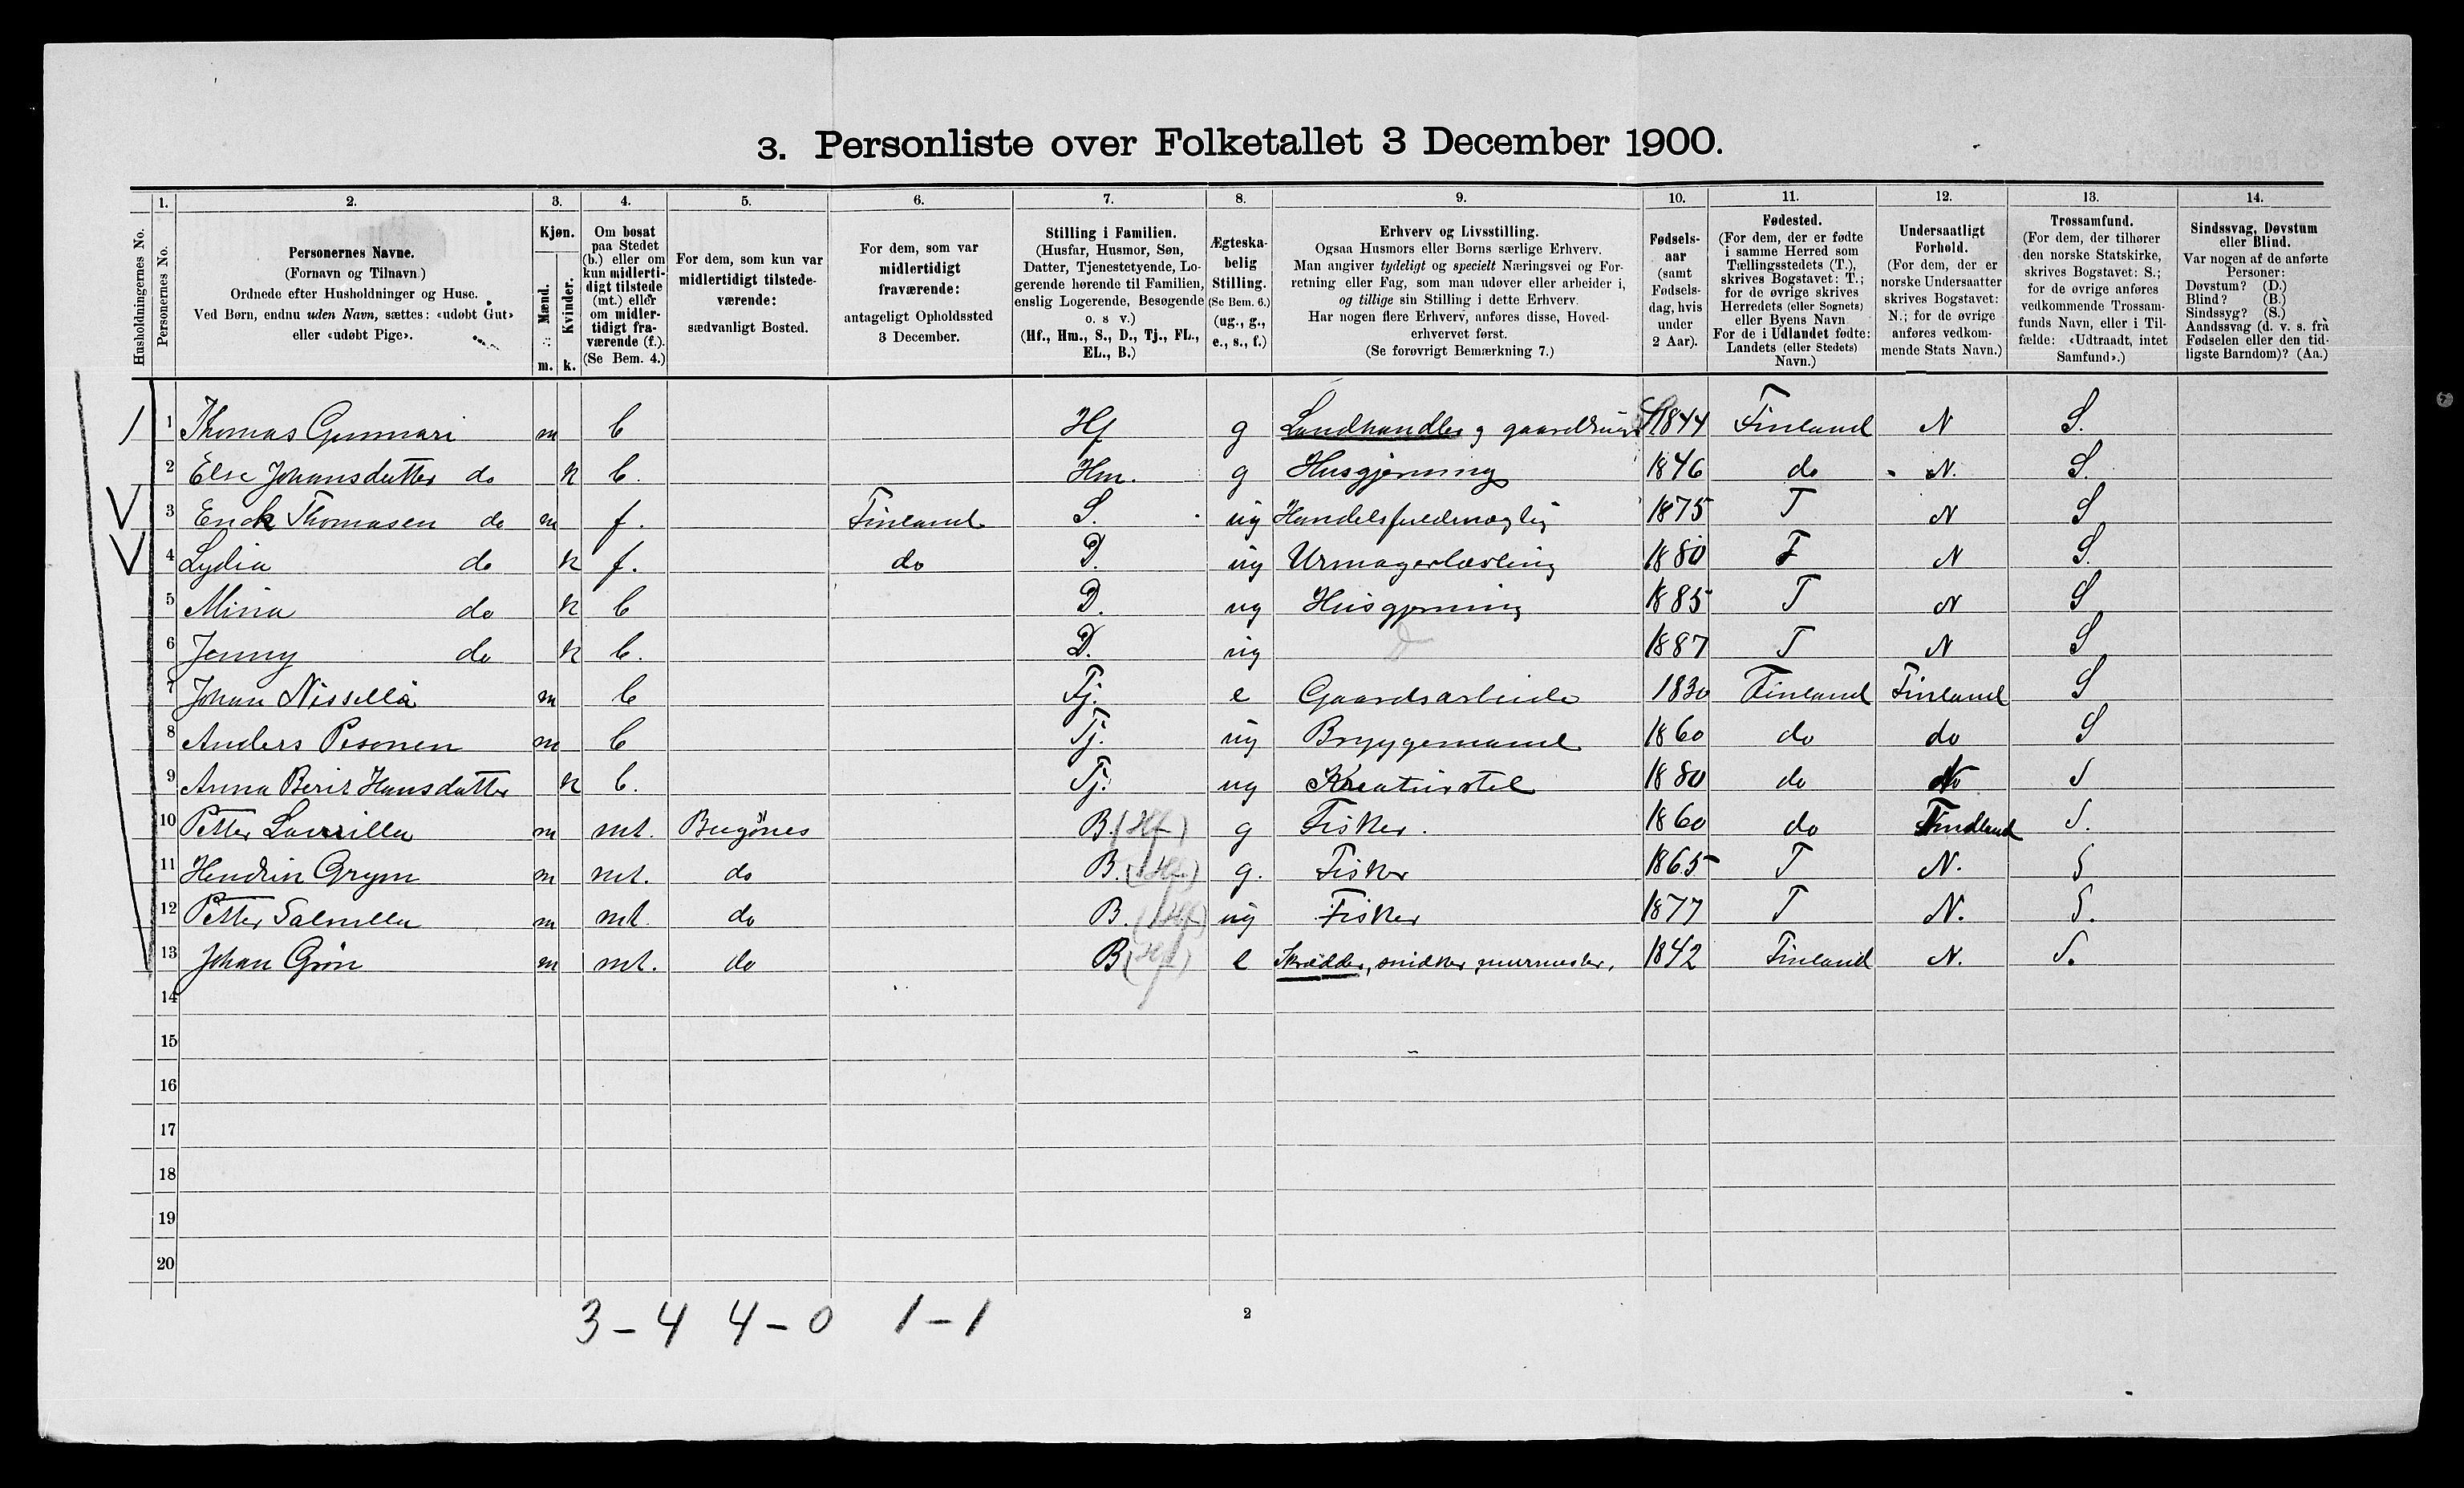 3. Personliste over Folketallet 3 December 1900.
1. 2. 3. 4. 5. 6. 7. 8. 9. 10. 11. 12. 13. 14.
Husholdningernes No.
Personernes No.
Personernes Navne.
(Fornavn og Tilnavn)
Ordnede efter Husholdninger og Huse.
Ved Børn, endnu uden Navn, sættes: «udøbt Gut»
eller «udøbt Pige».
Kjøn.
Mænd.
Kvinder.
m. k.
Om bosat
paa Stedet
(b.) eller om
kun midlerti-
digt tilstede
(mt.) eller
om midler-
tidigt fra-
værende (f.).
(Se Bem. 4.)
For dem, som kun var
midlertidigt tilstede-
værende:
sædvanligt Bosted.
For dem, som var
midlertidigt
fraværende:
antageligt Opholdssted
3 December.
Stilling i Familien.
(Husfar, Husmor, Søn,
Datter, Tjenestetyende, Lo-
gerende hørende til Familien,
enslig Logerende, Besøgende
o. s v.)
(Hf., Hm., S., D., Tj., FL.,
EL., B.)
Ægteska-
belig
Stilling.
(Se Bem. 6.)
(ug., g.,
e., s., f.)
Erhverv og Livsstilling.
Ogsaa Husmors eller Børns særlige Erhverv.
Man angiver tydeligt og specielt Næringsvei og For-
retning eller Fag, som man udøver eller arbeider i,
og tillige sin Stilling i dette Erhverv.
Har nogen flere Erhverv, anføres disse, Hoved-
erhvervet først.
(Se forøvrigt Bemærkning 7.)
Fødsels-
aar
(samt
Fødsels-
dag, hvis
under
2 Aar).
Fødested.
(For dem, der er fødte
i samme Herred som
Tællingsstedets (T.),
skrives Bogstavet: T.;
for de øvrige skrives
Herredets (eller Sognets)
eller Byens Navn
For de i Udlandet fødte:
Landets (eller Stedets)
Navn.)
Undersaatligt
Forhold.
(For dem, der er
norske Undersaatter
skrives Bogstavet:
N.; for de øvrige
anføres vedkom-
mende Stats Navn.)
Trossamfund.
(For dem, der tilhører
den norske Statskirke,
skrives Bogstavet: S.;
for de øvrige anføres
vedkommende Trossam-
funds Navn, eller i Til-
fælde: «Udtraadt, intet
Samfund».)
Sindssvag, Døvstum
eller Blind.
Var nogen af de anførte
Personer:
Døvstum? (D.)
Blind? (B.)
Sindssyg? (S.)
Aandssvag (d. v. s. fra
Fødselen eller den tid-
ligste Barndom)? (Aa.)
1 Thomas Gunnari m b Hf g Landhandler g 1844 Finland N S.
2 Else Johansdatter do k b. Hm. g Husgjerning 1846 do N. S.
3 Erick Thomasen do m f. Finland S. ug Handelsfuldmægtig 1875 T N S
4 Lydia do k f. do D. ug Urmagerlærling 1880 T N S.
5 Mina do k b D. ug Husgjerning 1885 T N S
6 Jenny do k b. D. ug 1887 T N S
7 Johan Nissellä m b Tj. e Gaardsarbeide 1830 Finland Finland S
8 Anders Pesonen m b Tj. ug Bryggemand 1860 do do S
9 Anna Berit Hansdatter k b. Tj. ug Kreaturstel 1880 do S
10 Petter Laurilla m mt. Bugønes B. (Hf) g Fisker. 1860 do Findland S.
11 Hendrin Grym m mt. do B. (Hf) g. Fisker 1865 T N. S
12 Petter Salmilla m mt. do B. (Hf) ug Fisker 1877 T N. S.
13 Johan Grøn m mt. do B (Hf) e Skrædder, snidker, murmester. 1842 Finland N. S.
14
15
16
17
18
19
20
3 – 4 4 – 0 1 – 1
2